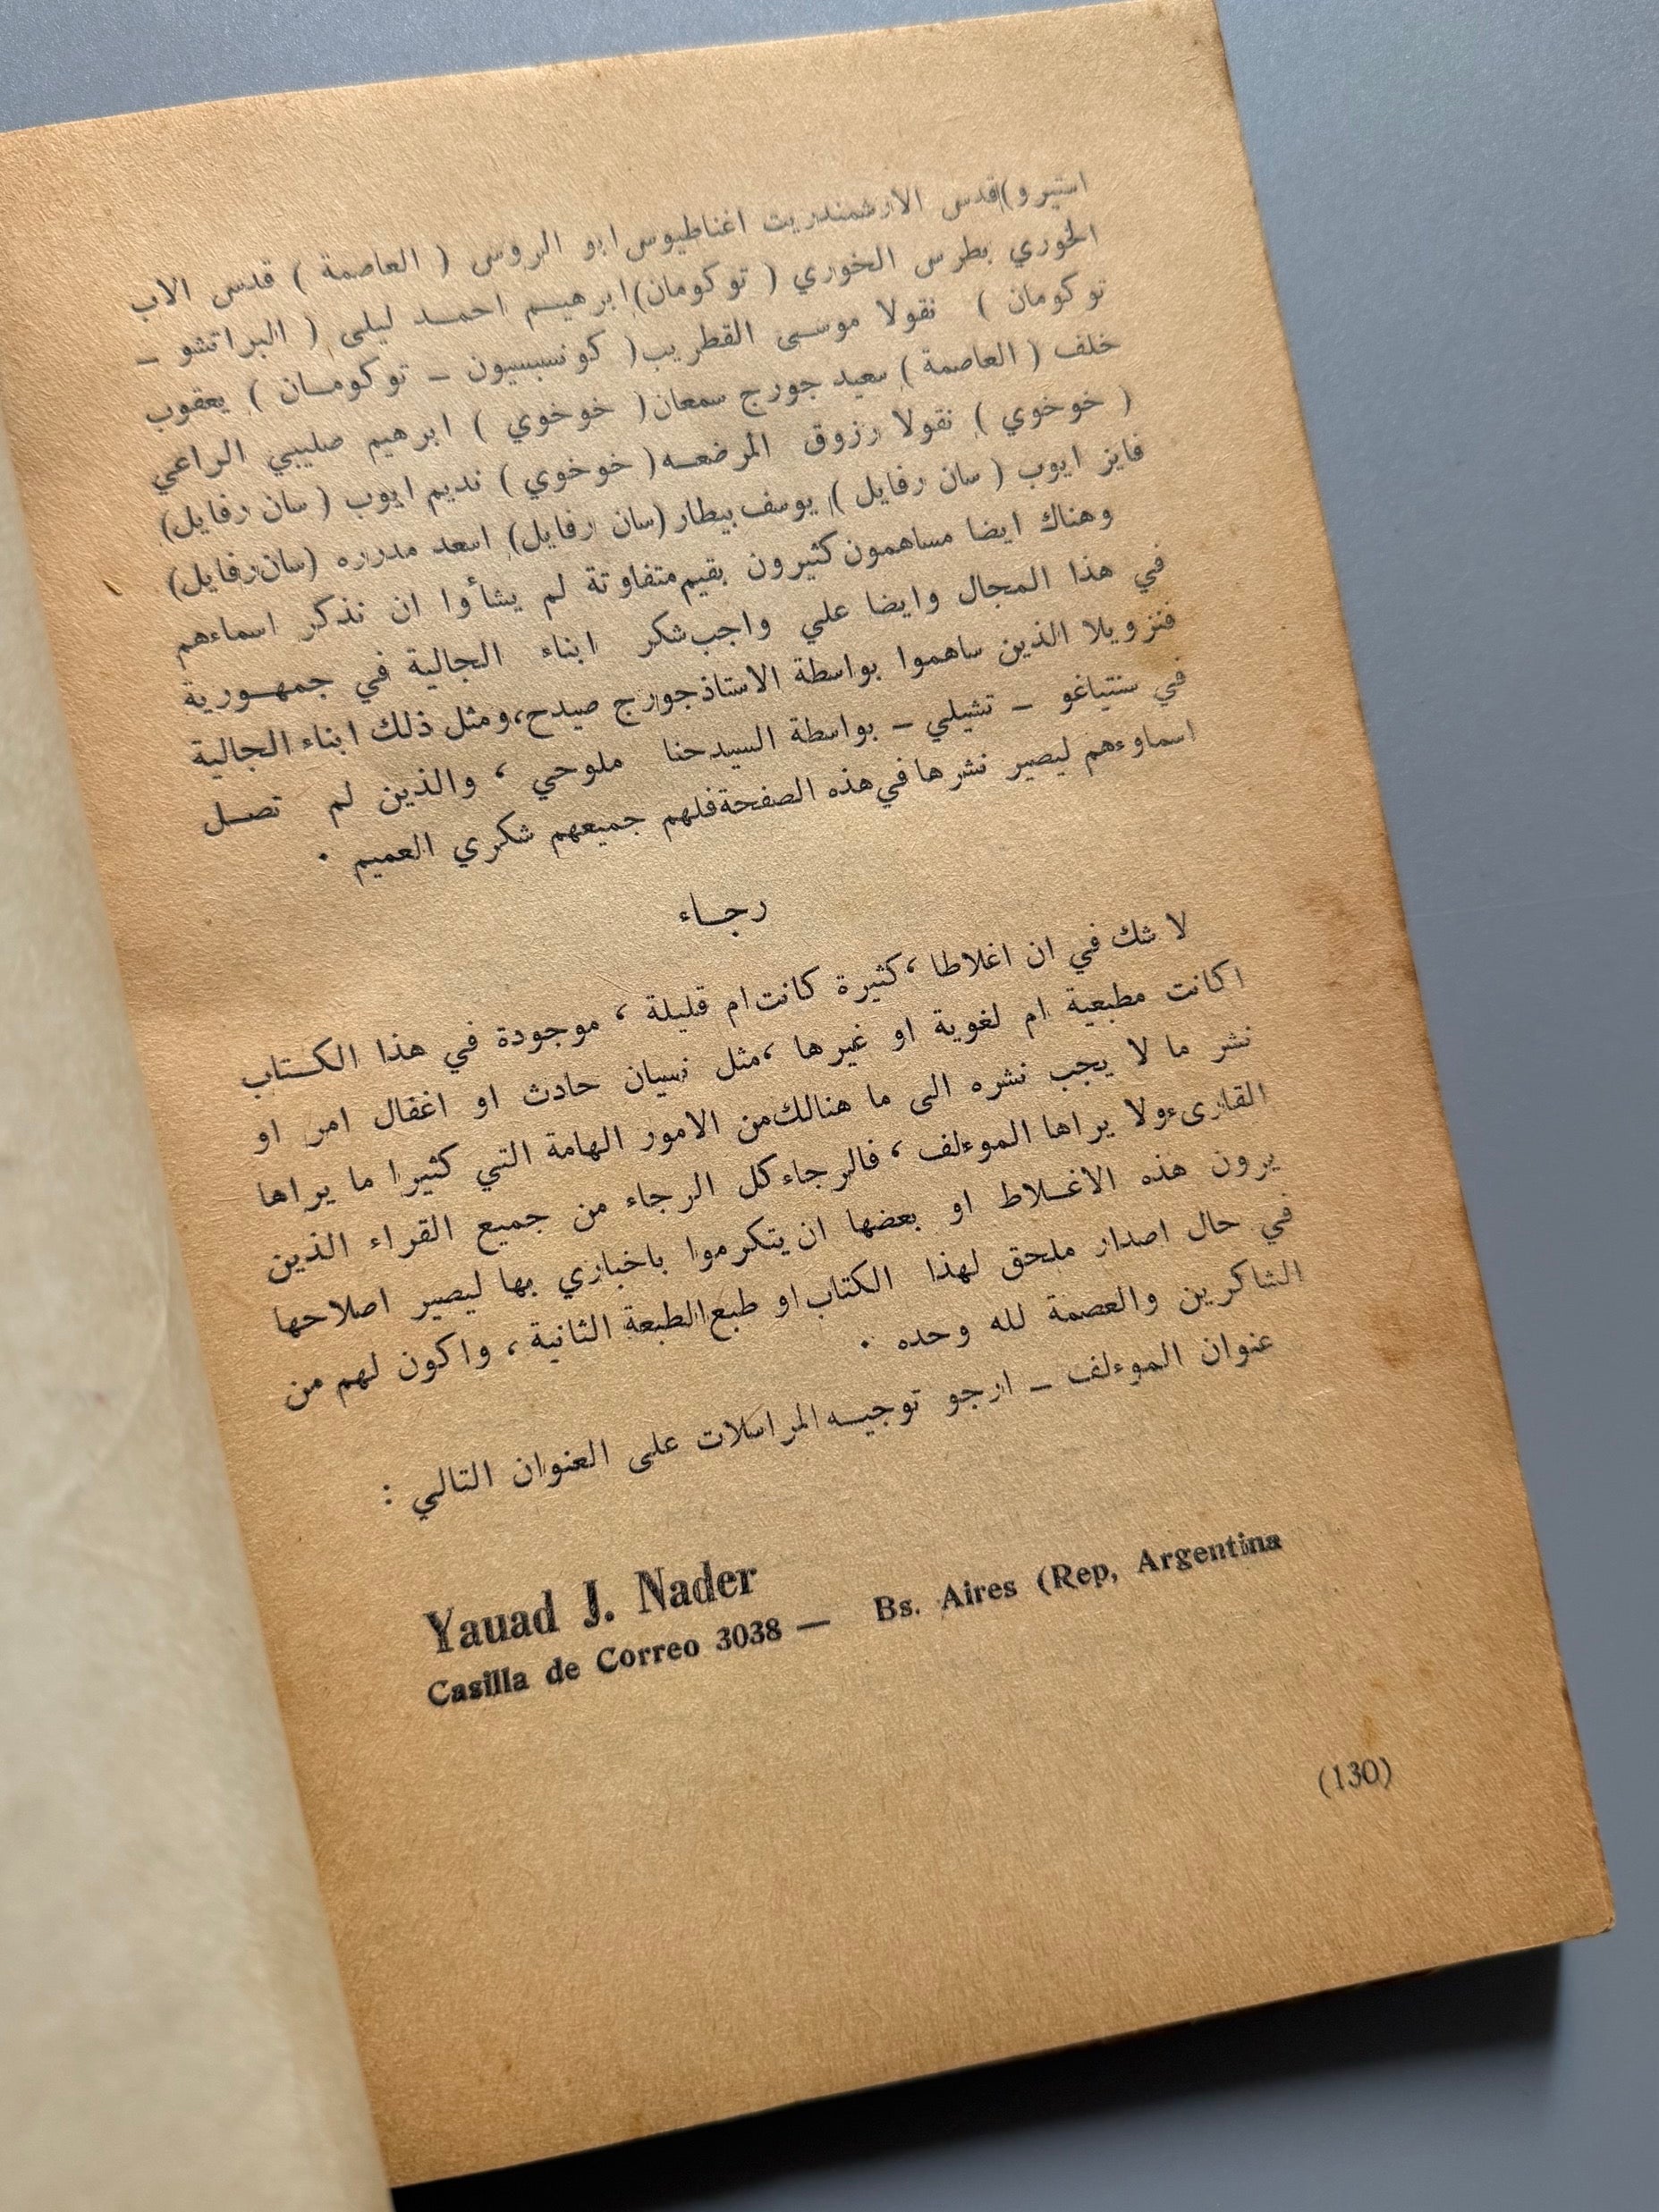 استيرو) قدس الارشمندريت اغناطيوس ابو الروس ( العاصمة ) قدس الاب
الخوري بطرس الخوري ( توكومان) ابرهيم احمد ليلى ( البراتشو –
توكومان ) نقولا موسى القطريب ( كونسبسيون – توكومان ) يعقوب
خلف ( العاصمة ) سعيد جورج سمعان ( خوخوي ) ابرهيم صليبي الراعي
( خوخوي ) نقولا رزوق المرضعه ( خوخوي ) نديم ايوب ( سان رفايل)
فايز ايوب ( سان رفايل ) يوسف بيطار (سان رفايل) اسعد مدرره (سان رفايل)
وهناك ايضا مساهمون كثيرون بقيم متفاوتة لم يشأوا ان نذكر اسماءهم
في هذا المجال وايضا علي واجب شكر ابناء الجالية في جمهورية
فنزويلا الذين ساهموا بواسطة الاستاذ جورج صيدح، ومثل ذلك ابناء الجالية
في سنتياغو – تشيلي – بواسطة السيد حنا ملوحي ، والذين لم تصل
اسماوءهم ليصير نشرها في هذه الصفحة فلهم جميعهم شكري العميم .
رجاء
لا شك في ان اغلاطا ، كثيرة كانت ام قليلة ، موجودة في هذا الكتاب
اكانت مطبعية ام لغوية او غيرها ، مثل نسيان حادث او اغفال امر او
نشر ما لا يجب نشره الى ما هنالك من الامور الهامة التي كثيرا ما يراها
القارىء ولا يراها الموءلف ، فالرجاء كل الرجاء من جميع القراء الذين
يرون هذه الاغلاط او بعضها ان يتكرموا باخباري بها ليصير اصلاحها
في حال اصدار ملحق لهذا الكتاب او طبع الطبعة الثانية ، واكون لهم من
الشاكرين والعصمة لله وحده .
عنوان الموءلف – ارجو توجيه المراسلات على العنوان التالي :
Yauad J. Nader
Casilla de Correo 3038 — Bs. Aires (Rep, Argentina
(130)